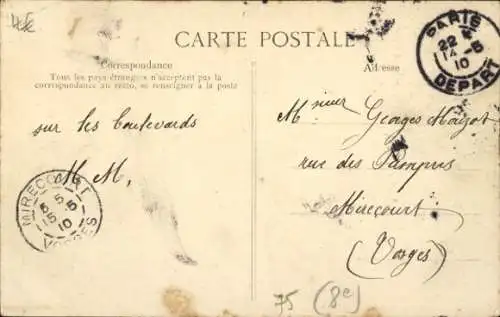 CARTE POSTALE
Correspondance
Tous les pays étrangers n'acceptent pas la
correspondance au recto, se renseigner à la poste
sur les boulevards
M M,
MIRECOURT
5 5-5
10
VOSGES
Adresse
PARIS
22
14-5
10
DEPART
Monsieur Georges
rue des Pampres
Mirecourt
(Vosges)
75 (8e)